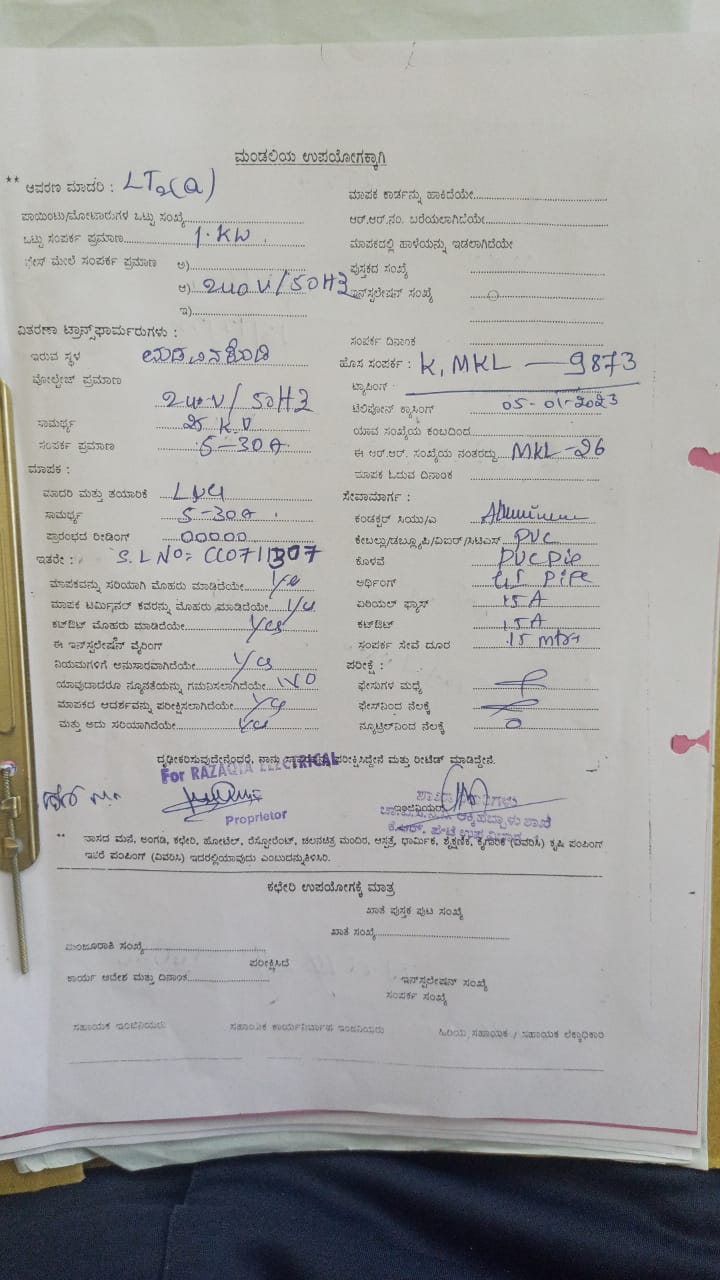 ಮಂಡಲಿಯ ಉಪಯೋಗಕ್ಕಾಗಿ
** ಆವರಣ ಮಾದರಿ : LT2(a)
ಪಾಯಿಂಟು/ಮೋಟಾರುಗಳ ಒಟ್ಟು ಸಂಖ್ಯೆ
ಒಟ್ಟು ಸಂಪರ್ಕ ಪ್ರಮಾಣ 1.KW
ಫೇಸ್ ಮೇಲೆ ಸಂಪರ್ಕ ಪ್ರಮಾಣ ಅ)
ಆ) 240 V/50HZ
ಇ)
ವಿತರಣಾ ಟ್ರಾನ್ಸ್‌ಫಾರ್ಮರುಗಳು :
ಇರುವ ಸ್ಥಳ
ವೋಲ್ಟೇಜ್ ಪ್ರಮಾಣ
240V/50HZ
ಸಾಮರ್ಥ್ಯ 25 K V
ಸಂಪರ್ಕ ಪ್ರಮಾಣ 5-30A
ಮಾಪಕ :
ಮಾದರಿ ಮತ್ತು ತಯಾರಿಕೆ
ಸಾಮರ್ಥ್ಯ 5-30A
ಪ್ರಾರಂಭದ ರೀಡಿಂಗ್ 00000
ಇತರೇ : S.L NO: CC0711307
ಮಾಪಕವನ್ನು ಸರಿಯಾಗಿ ಮೊಹರು ಮಾಡಿದೆಯೇ Yes
ಮಾಪಕ ಟರ್ಮಿನಲ್ ಕವರನ್ನು ಮೊಹರು ಮಾಡಿದೆಯೇ Yes
ಕಟ್‌ಔಟ್ ಮೊಹರು ಮಾಡಿದೆಯೇ Yes
ಈ ಇನ್‌ಸ್ಟಲೇಷನ್ ವೈರಿಂಗ್
ನಿಯಮಗಳಿಗೆ ಅನುಸಾರವಾಗಿದೆಯೇ Yes
ಯಾವುದಾದರೂ ನ್ಯೂನತೆಯನ್ನು ಗಮನಿಸಲಾಗಿದೆಯೇ NO
ಮಾಪಕದ ಆದರ್ಶವನ್ನು ಪರೀಕ್ಷಿಸಲಾಗಿದೆಯೇ Yes
ಮತ್ತು ಅದು ಸರಿಯಾಗಿದೆಯೇ Yes
ಮಾಪಕ ಕಾರ್ಡನ್ನು ಹಾಕಿದೆಯೇ
ಆರ್.ಆರ್.ನಂ. ಬರೆಯಲಾಗಿದೆಯೇ
ಮಾಪಕದಲ್ಲಿ ಹಾಳೆಯನ್ನು ಇಡಲಾಗಿದೆಯೇ
ಪುಸ್ತಕದ ಸಂಖ್ಯೆ
ಇನ್‌ಸ್ಟಲೇಷನ್ ಸಂಖ್ಯೆ
ಸಂಪರ್ಕ ದಿನಾಂಕ
ಹೊಸ ಸಂಪರ್ಕ : K, MKL — 9873
ಟ್ಯಾಪಿಂಗ್ :
ಟೆಲಿಫೋನ್ ಕ್ರಾಸಿಂಗ್ 05-01-2023
ಯಾವ ಸಂಖ್ಯೆಯ ಕಂಬದಿಂದ
ಈ ಆರ್.ಆರ್. ಸಂಖ್ಯೆಯ ನಂತರದ್ದು MKL-26
ಮಾಪಕ ಓದುವ ದಿನಾಂಕ
ಸೇವಾಮಾರ್ಗ :
ಕಂಡಕ್ಟರ್ ಸಿಯು/ಎ Aluminium
ಕೇಬಲ್ಲು/ಡಬ್ಲ್ಯೂಪಿ/ವಿಐರ್/ಸಿಟಿಎಸ್ PVC
ಕೊಳವೆ PVC Pip
ಅರ್ಥಿಂಗ್ GI PiPe
ಏರಿಯಲ್ ಫ್ಯೂಸ್ 15 A
ಕಟ್‌ಔಟ್ 15A
ಸಂಪರ್ಕ ಸೇವೆ ದೂರ 15 mtrs
ಪರೀಕ್ಷೆ :
ಫೇಸುಗಳ ಮಧ್ಯೆ
ಫೇಸ್‌ನಿಂದ ನೆಲಕ್ಕೆ
ನ್ಯೂಟ್ರಲ್‌ನಿಂದ ನೆಲಕ್ಕೆ 0
ದೃಢೀಕರಿಸುವುದೇನೆಂದರೆ, ನಾನು ಪರೀಕ್ಷಿಸಿದ್ದೇನೆ ಮತ್ತು ರೀಟೆಡ್ ಮಾಡಿದ್ದೇನೆ.
For RAZAQIA ELECTRICAL
Proprietor
ಇಂಜಿನಿಯರ್
** ವಾಸದ ಮನೆ, ಅಂಗಡಿ, ಕಛೇರಿ, ಹೋಟೆಲ್, ರೆಸ್ಟೋರೆಂಟ್, ಚಲನಚಿತ್ರ ಮಂದಿರ, ಆಸ್ಪತ್ರೆ, ಧಾರ್ಮಿಕ, ಶೈಕ್ಷಣಿಕ, ಕೈಗಾರಿಕೆ (ವಿವರಿಸಿ) ಕೃಷಿ ಪಂಪಿಂಗ್
ಇತರೆ ಪಂಪಿಂಗ್ (ವಿವರಿಸಿ) ಇದರಲ್ಲಿಯಾವುದು ಎಂಬುದನ್ನುತಿಳಿಸಿರಿ.
ಕಛೇರಿ ಉಪಯೋಗಕ್ಕೆ ಮಾತ್ರ
ಖಾತೆ ಪುಸ್ತಕ ಪುಟ ಸಂಖ್ಯೆ
ಖಾತೆ ಸಂಖ್ಯೆ
ಮಂಜೂರಾತಿ ಸಂಖ್ಯೆ
ಪರೀಕ್ಷಿಸಿದೆ
ಕಾರ್ಯ ಆದೇಶ ಮತ್ತು ದಿನಾಂಕ
ಇನ್‌ಸ್ಟಲೇಷನ್ ಸಂಖ್ಯೆ
ಸಂಪರ್ಕ ಸಂಖ್ಯೆ
ಸಹಾಯಕ ಇಂಜಿನಿಯರು ಸಹಾಯಕ ಕಾರ್ಯನಿರ್ವಾಹ ಇಂಜನಿಯರು ಹಿರಿಯ ಸಹಾಯಕ / ಸಹಾಯಕ ಲೆಕ್ಕಾಧಿಕಾರಿ